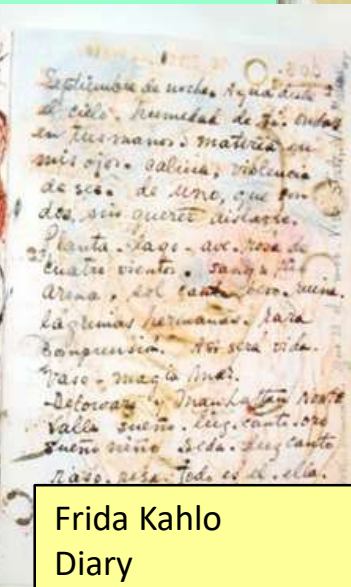 Septiembre de noche. Agua desde
el cielo. humedad de ti. ondas
en tus manos. materia en
mis ojos. calma, violencia
de ser. de uno, que son
dos, sin querer aislarse.
Planta. lago. ave. rosa de
cuatro vientos. sangre
arena. sol canta beso. ruina.
lágrimas hermanas. para
comprensión. Así será vida.
Vaso. magia mar.
Delaware y Manhattan Norte
Valle sueño. luz. canto. oro
sueño niño seda. luz canto
risa. Todo es el. ella.
Frida Kahlo
Diary